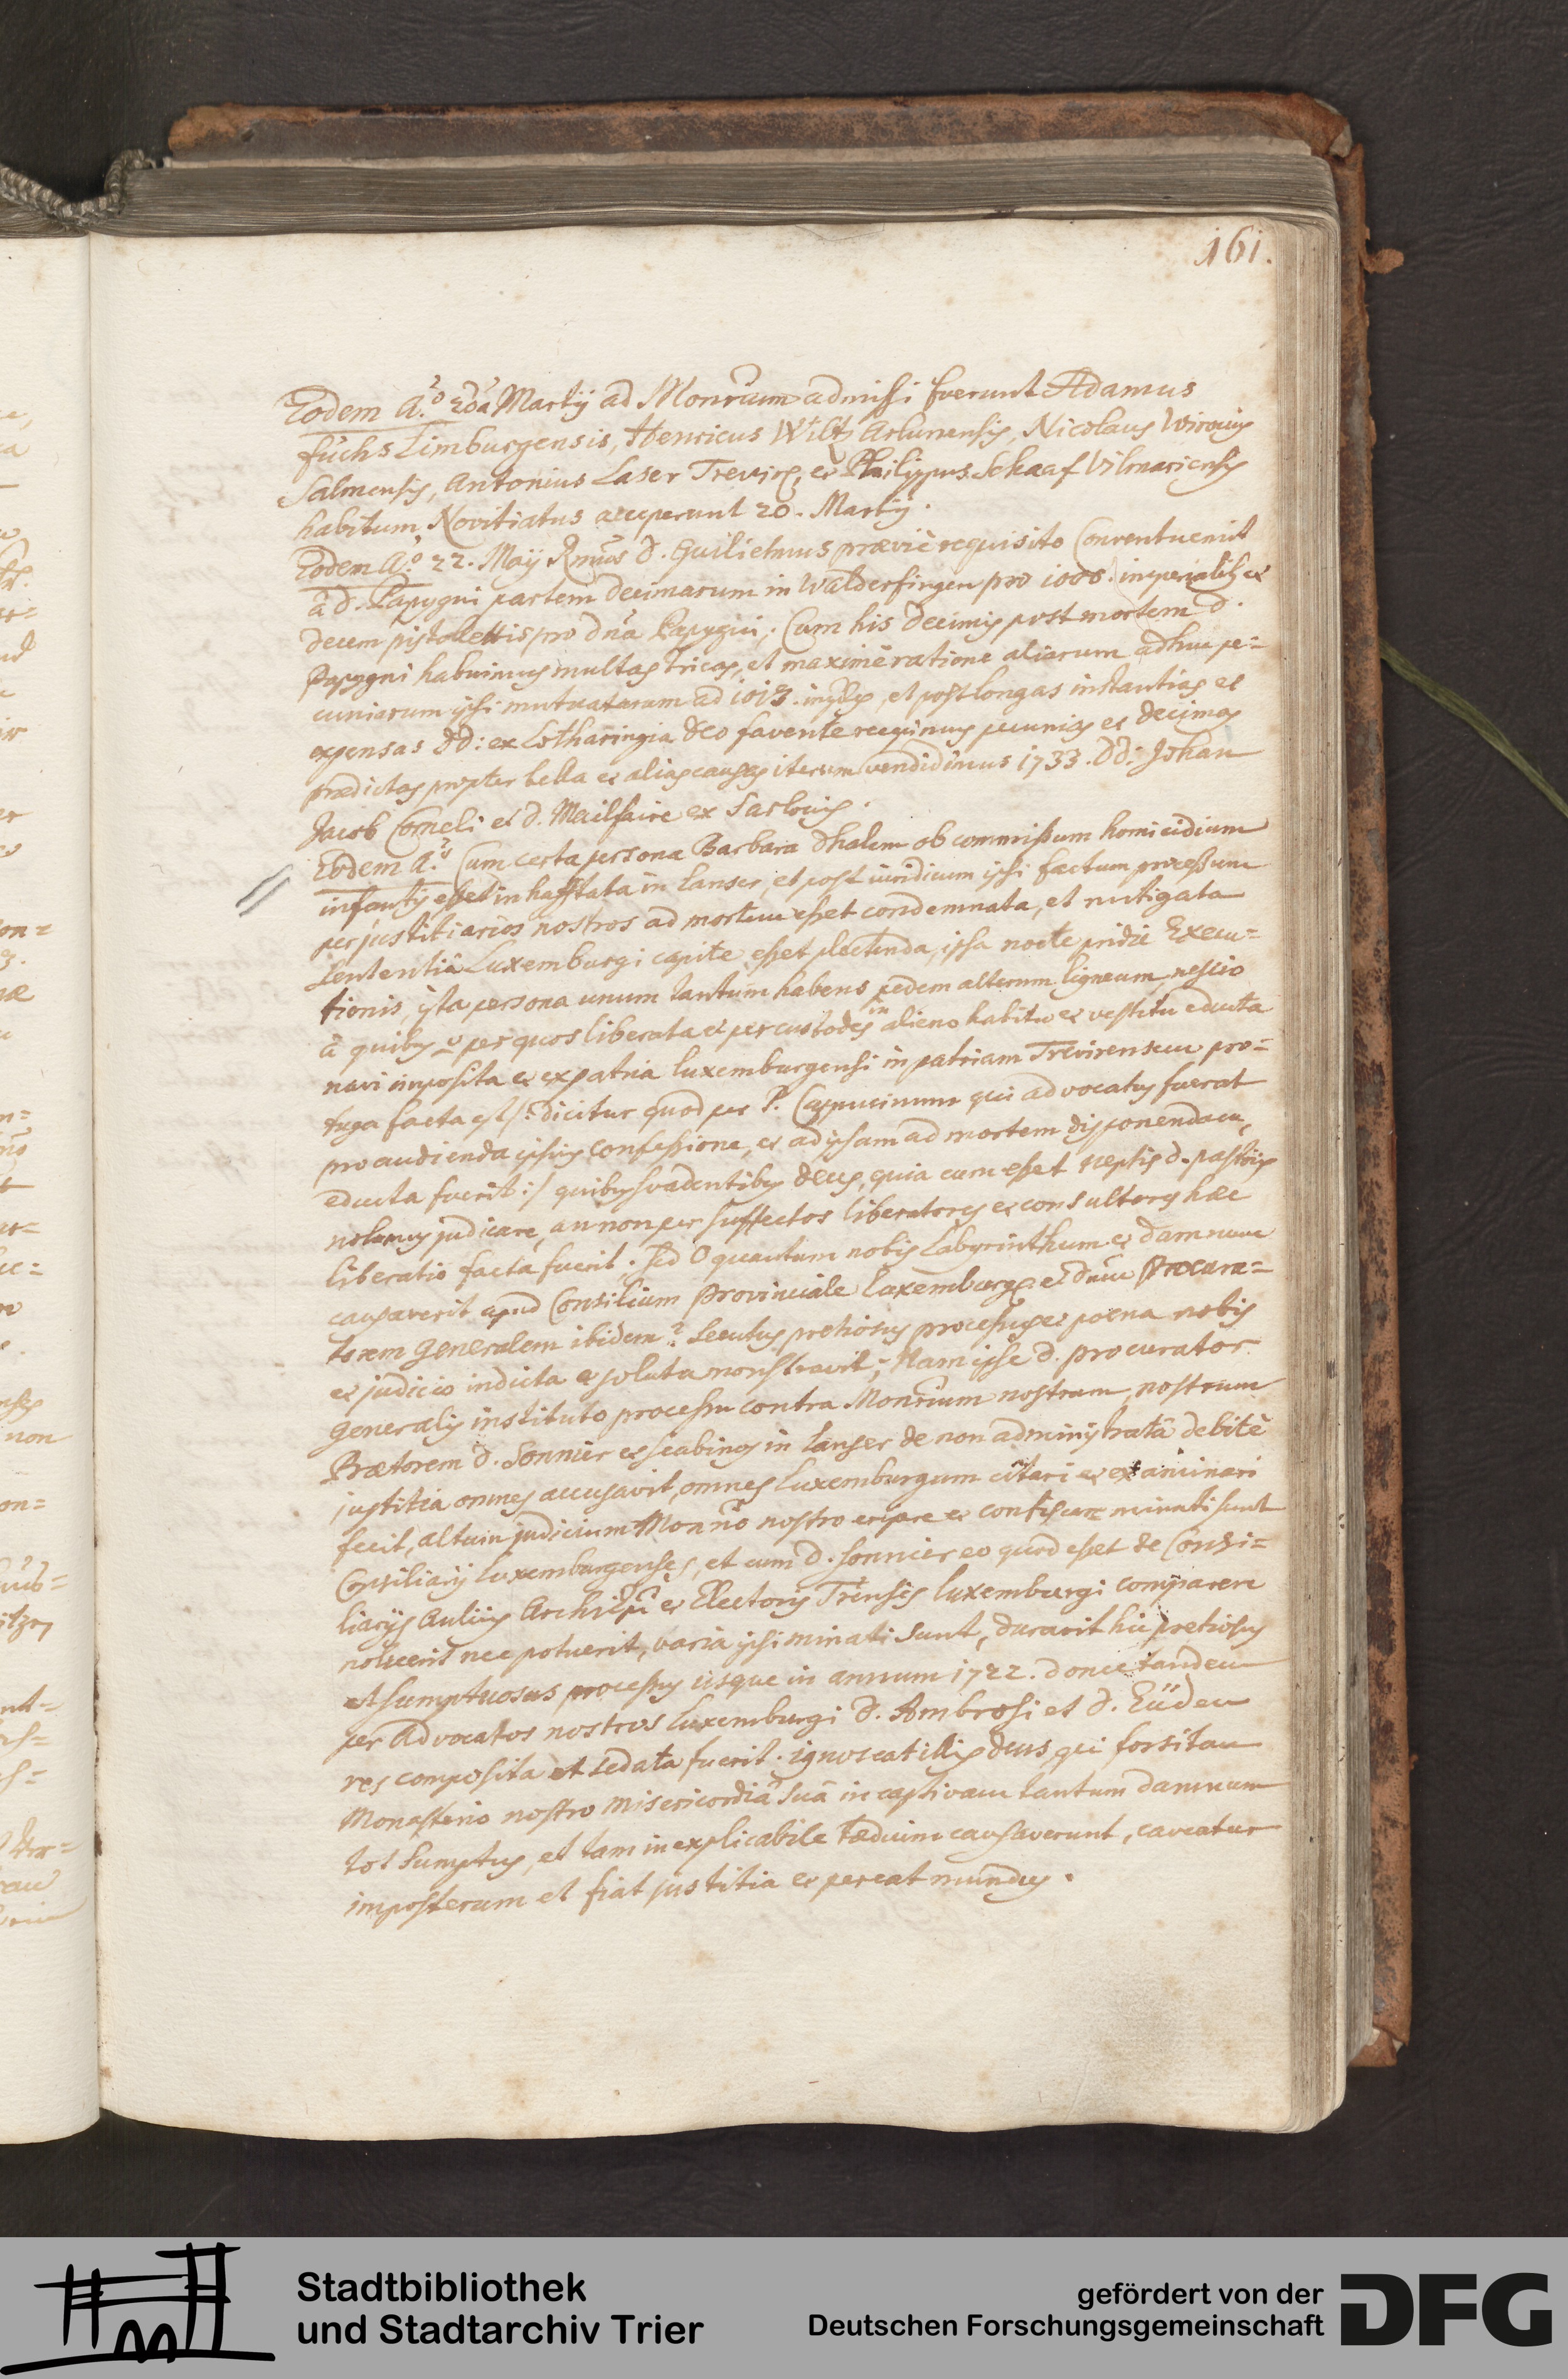 161.
Eodem A.º 20a Martij ad Monrium admissi fuerunt Adamus
fuchs Limburgensis, Henricus Wiltz Arlunensis, Nicolaus
Salmensis, Antonius Laser Trevir, et Philippus Schaaf Vilmariensis
habitum Novitiatus acceperunt 20. Martij.
Eodem A.º 22. Maij Rmus D. Guilielmus praeviè requisito Conventu emit
à d. Papigni partem decimarum in Walderfingen pro 1000. imperialib et
decem pistolettis pro dna Papigni; Cum his decimis post mortem d.
Papigni habuimus multas tricas, et maximè ratione aliarum adhuc pe=
cuniarum ipsi mutuatarum ad 1013. et post longas instantias et
expensas DD: ex Lotharingia deo favente recepimus pecunias et decimas
praedictas propter bella et alias causas iterum vendidimus 1733. DD: Johan
Jacob Corneli et D. Mailfaire ex Sarlouis.
Eodem A.º Cum certa persona Barbara Dhalem ob commissum homicidium
infantis esset in hafftata in Lanser, et post iuridicum ipsi factum processum
per justitiarios nostros ad mortem esset condemnata, et mitigata
sententiâ Luxemburgi capite esset plectenda, ipsa nocte pridie Execu=
tionis, ista persona unum tantum habens pedem alterum ligneum, nescio
à quibus et per quos liberata et per custodes in alieno habitu et vestitu educta
navi imposita et ex patria luxemburgensi in patriam Trevirensem pro=
fuga facta est /: dicitur quod per P. Capucinum qui advocatus fuerat
pro audienda ipsius confessione, et ad ipsam ad mortem disponendam,
educta fuerit :/ quibus suadentibus deus, quia cum esset neptis d. pastoris
nolumus judicare, an non per suffectos liberatores et consultores haec
liberatio facta fuerit. Sed O quantum nobis Labyrinthum et damnum
causaverit apud Consilium Provinciale Luxemburg. et dnum Procura=
torem Generalem ibidem? Secutus pretiosus processus et poena nobis
et judicio indicta et soluta monstravit; Nam ipse D. procurator
Generalis instituto processu contra Monrium nostrum, nostrum
Praetorem D. Sonnier et scabinos in Lanser de non administratâ debitè
justitia omnes accusavit, omnes Luxemburgum citari et examinari
fecit, altum judicium Monrio nostro eripere et confiscare minati sunt
Consiliarij Luxemburgenses, et cum D. Sonnier eo quod esset de Consi=
liarijs Aulicis Archi Epi et Electoris Trensis luxemburgi comparere
noluerit nec potuerit, varia ipsi minati sunt, duravit hic pretiosus
et sumptuosus processus usque in annum 1722. donec tandem
per Advocatos nostros Luxemburgi D. Ambrosi et D. Eüden
res composita et sedata fuerit. ignoscat illis deus, qui forsitan
Monasterio nostro misericordiâ suâ in captivam tantum damnum
tot sumptus, et tam inexplicabile taedium causaverunt, caveatur
imposterum et fiat justitia et pereat mundus.
Stadtbibliothek
und Stadtarchiv Trier
gefördert von der
Deutschen Forschungsgemeinschaft
DFG